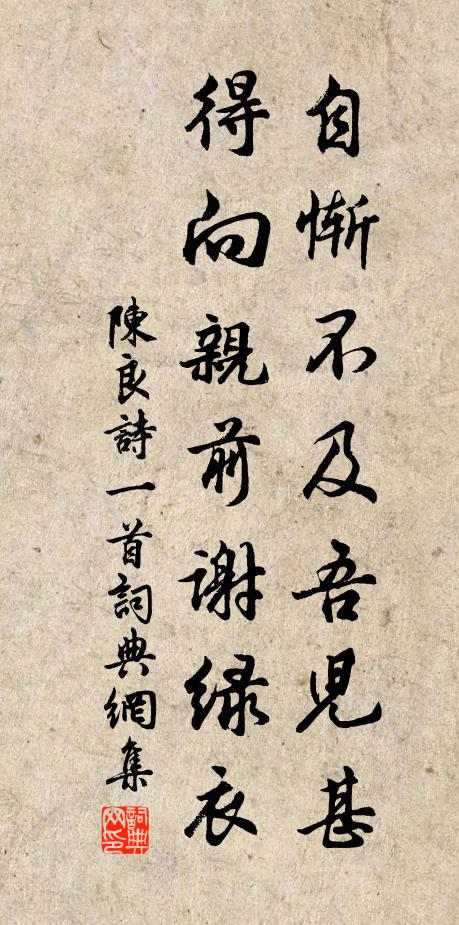 自慚不及吾兒甚
得向親前謝綠衣
陳良詩一首詞典網集
詞典
网印